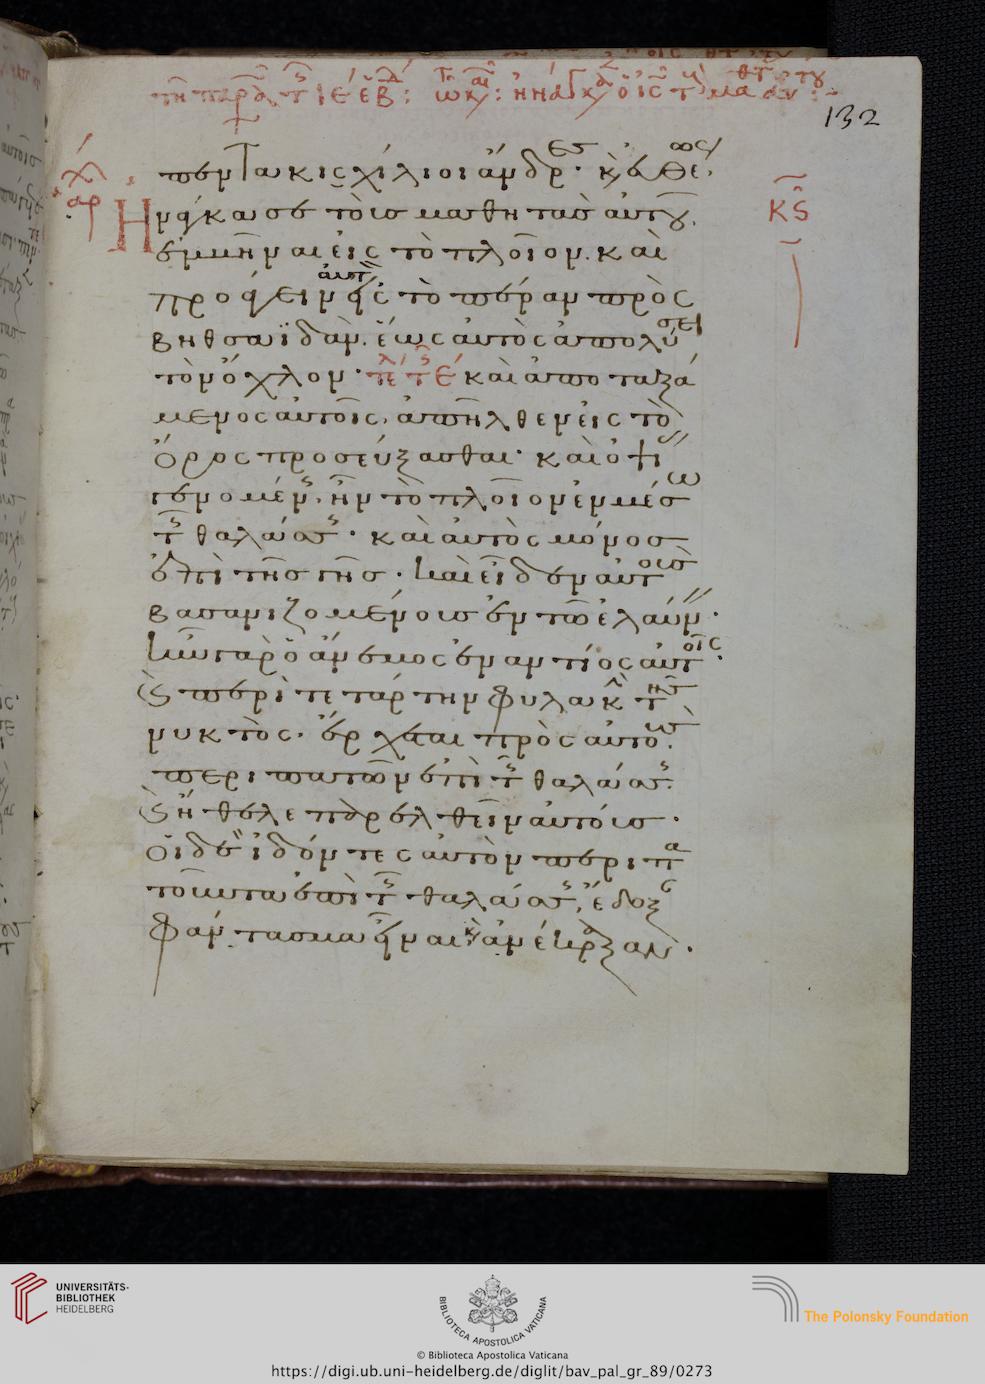 132
πεντακισχίλιοι ἄνδρες· καὶ εὐθέως
Ἠνάγκασε τοὺς μαθητὰς αὐτοῦ
ἐμβῆναι εἰς τὸ πλοῖον. καὶ
προάγειν αὐτὸν εἰς τὸ πέραν πρὸς
βηθσαϊδάν. ἕως αὐτὸς ἀπολύσει
τὸν ὄχλον· καὶ ἀποταξά
μενος αὐτοῖς, ἀπῆλθεν εἰς τὸ
ὄρος προσεύξασθαι· καὶ ὀψί
γενομένης, ἦν τὸ πλοῖον ἐν μέσω
τῆς θαλάσσης· καὶ αὐτὸς μόνος
ἐπὶ τῆς γῆς· καὶ εἶδεν αὐτοὺς
βασανιζομένους ἐν τῶ ἐλαύνειν·
ἦν γὰρ ὁ ἄνεμος ἐναντίος αὐτοῖς·
καὶ περὶ τετάρτην φυλακὴν τῆς
νυκτὸς· ἔρχεται πρὸς αὐτοὺς.
περιπατῶν ἐπὶ τῆς θαλάσσης.
καὶ ἤθελε παρελθεῖν αὐτούς·
οἱ δὲ ἰδόντες αὐτὸν περιπα
τοῦντα ἐπὶ τῆς θαλάσσης, ἔδοξαν
φάντασμα εἶναι καὶ ἀνέκραξαν·
κς
UNIVERSITÄTS-
BIBLIOTHEK
HEIDELBERG
BIBLIOTECA APOSTOLICA VATICANA
The Polonsky Foundation
© Biblioteca Apostolica Vaticana
https://digi.ub.uni-heidelberg.de/diglit/bav_pal_gr_89/0273